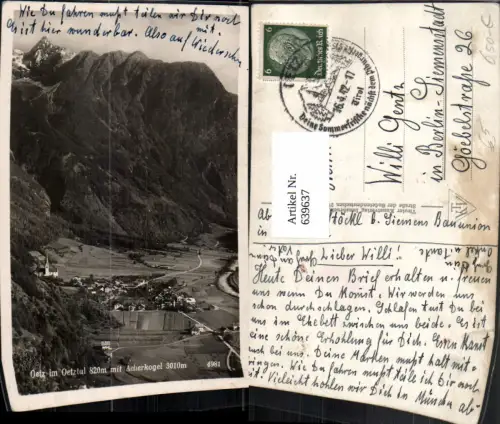 Wie Du fahren mußt teilen wir Dir noch
Es ist hier wunderbar. Also auf Wiedersehn
Oetz im Oetztal 820m mit Acherkogel 3010m 4981
6 Deutsches Reich 6
Deine Sommerfrische nächst dem
Tirol
Artikel Nr.
639637
Willi Gentz
in Berlin-Siemensstadt
Goebelstraße 26
Ab
Höckl b. Siemens Bauunion
in
Lieber Willi!
Heute Deinen Brief erhalten u. freuen
uns wenn Du kommst. Wir werden uns
schon durchschlagen. Schlafen tust Du bei
uns im Ehebett zwischen uns beide. Es ist
eine schöne Erholung für Dich. Essen kannst
auch bei uns. Deine Marken mußt halt mit-
bringen. Wie Du fahren mußt teile ich Dir noch
mit. Vielleicht hohlen wir Dich in München ab-